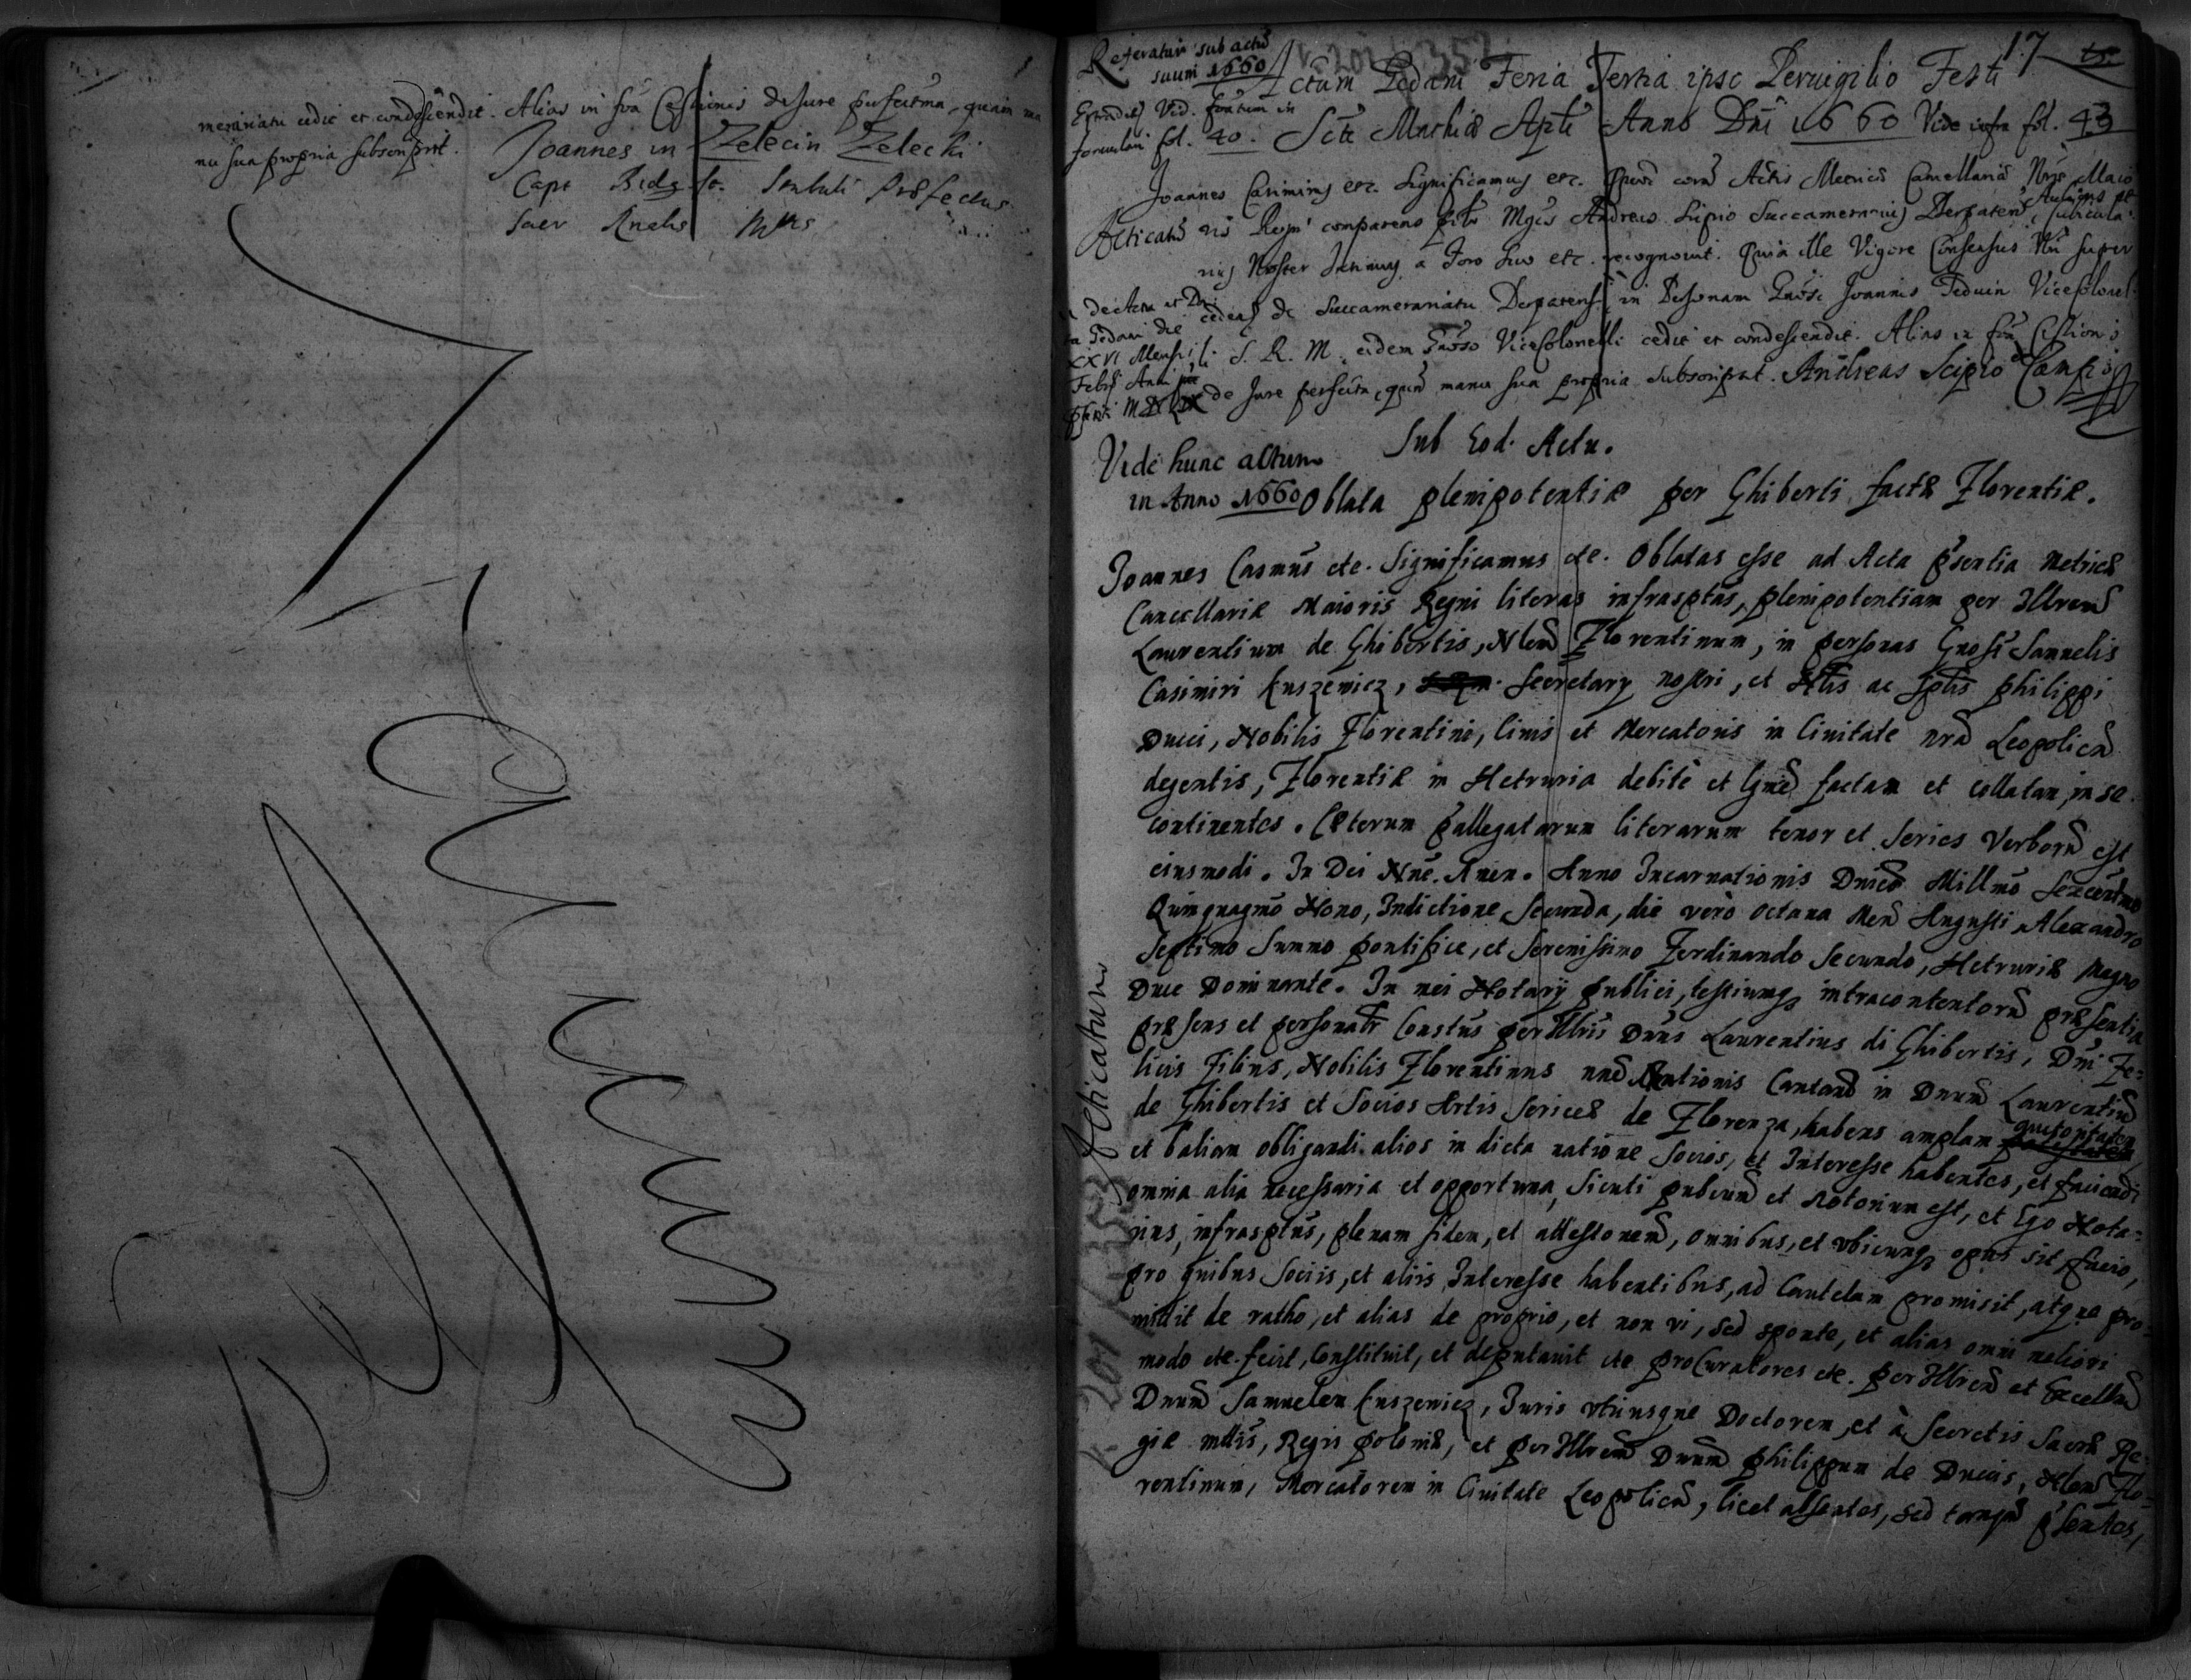 merariatu cedit et condescendit. Alias in fôa Cessionis de Jure perfectma, quam ma
nu sua propria subscripsit.
Joannes in Zelecin Zelecki
Capt Bidg. St. Stabuli Præfectus
Sacr Regiæ Mttis
17
Referatur sub actũ
suum 1660
Actum Gedani Feria Tertia ipso Pervigilio Festi
Sctĩ Mathiæ Aptĩ Anno Dnĩ 1660 Vide infra fol. 43
Extraditũ Vid. in
formulari fol. 40.
Joannes Casimirus etc. Significamus etc. Quod corã Actis Metricæ Cancellariæ Nrẽ Maio
Acticatũ ris Regni comparens Mgcus Andreas Scipio Succamerarius Derpatens, Cubicula-
rius Noster Intimus a Foro suo etc. recognovit. Quia ille Vigore Consensus Nri super
cedens de Succamerariatu Derpatensi in Personam Gnõsi Joannis Teduin Vicecolonel-
li S. R. M. eidem Gnõso Vicecolonelli cedit et condescendit. Alias in fôa Cessionis
de Jure perfectma, quam manu sua propria subscripsit. Andreas Scipio de Campo
de Actu et Da
ta Gedani die
XXVI Mensis
Febr Anni
Vide hunc actum
in Anno 1660
Sub Eod. Actu.
Oblata plenipotentiæ per Ghiberti factæ Florentiæ.
Joannes Casmus etc. Significamus etc. Oblatas esse ad Acta psentia Metricæ
Cancellariæ Maioris Regni literas infrasptas, plenipotentiam per Illrem
Laurentium de Ghibertis, Nlem Florentinum, in personas Gnosi Samuelis
Casimiri Kuszewicz, Secretary nostri, et Nlis ac Sptlis Philippi
Ducci, Nobilis Florentini, Civis et Mercatoris in Civitate nra Leopolien
degentis, Florentiæ in Hetruria debitè et lgmè factam et collatam, in se
continentes. Cæterum pallegatarum literarum tenor et series Verborũ est
eiusmodi. In Dei Nnẽ. Amen. Anno Incarnationis Dnicæ Millmo Sexcentmo
Quinquagmo Nono, Indictione Secunda, die verò octava Men Augusti, Alexandro
Septimo Summo Pontifice, et Serenissimo Ferdinando Secundo, Hetruriæ Magno
Duce Dominante. In mei Notarij publici, testiumq intracontentorũ præsentia
præsens et personalr Constus perIllris Dnus Laurentius di Ghibertis, Dni Fe-
licis Filius, Nobilis Florentinus Rationis Cantanũ in Dnum Laurentiũ
de Ghibertis et Socios Artis Sericeæ de Florenza, habens amplam autoritatem
et baliam obligandi alios in dicta ratione Socios, et Interesse habentes, et faciendi
omnia alia necessaria et opportuna, Sicuti pubcum et notorium est, et Ego Nota-
rius, infrasptus, plenam fidem, et attestonem, omnibus, et vbicunq opus sit, facio,
pro quibus Sociis, et aliis Interesse habentibus, ad Cautelam promisit, atque pro-
misit de ratho, et alias de proprio, et non vi, sed sponte, et alias omni meliori
modo etc. fecit, Constituit, et deputavit etc. proCuratores etc. perIllrem et Excellm
Dnum Samuelem Kuszewicz, Juris vtriusque Doctorem, et à Secretis Sacræ Re-
giæ Mttis, Regis Poloniæ, et perIllrem Dnum Philippum de Duccis, Nlem Flo-
rentinum, Mercatorem in Civitate Leopolien, licet absentes, sed tamqm psentes,
Acticatum